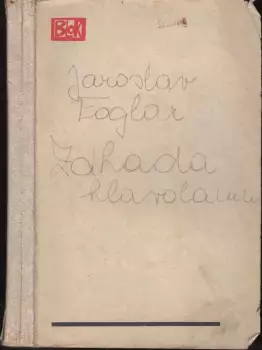 Blok
Jaroslav
Foglar
Záhada
hlavolamu